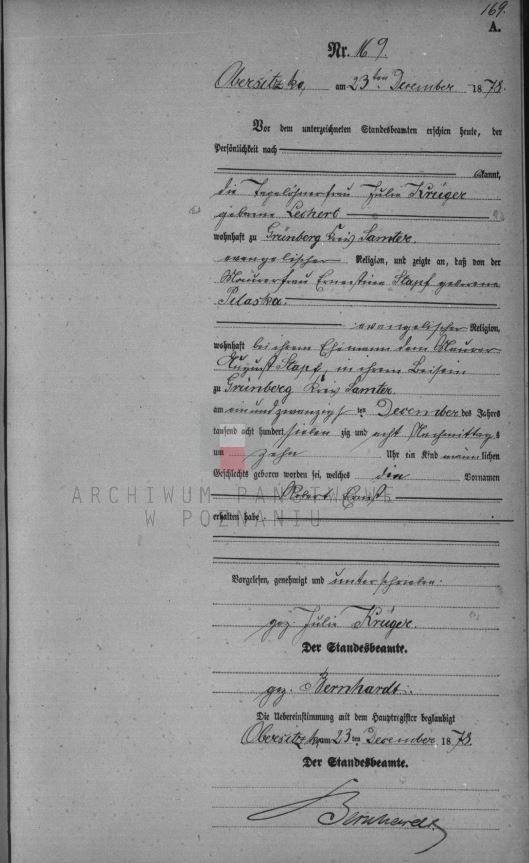 169.
A.
Nr. 169.
Obersitzko, am 23ten December 1878.
Vor dem unterzeichneten Standesbeamten erschien heute, der
Persönlichkeit nach
kannt,
die Tagelöhnerfrau Julie Krüger
geborene Lechert
wohnhaft zu Grünberg Kreis Samter
evangelischer Religion, und zeigte an, daß von der
Maurerfrau Ernestine Stapf geborene
Pilaska
evangelischer Religion,
wohnhaft bei ihrem Ehemann dem Maurer
August Stapf, in ihrem Beisein
zu Grünberg Kreis Samter
am einundzwanzigsten December des Jahres
tausend acht hundert siebenzig und acht Nachmittags
um zehn Uhr ein Kind männlichen
Geschlechts geboren worden sei, welches den Vornamen
Robert Ernst
erhalten habe
Vorgelesen, genehmigt und unterschrieben.
gez. Julie Krüger.
Der Standesbeamte.
gez. Bernhardt.
Die Uebereinstimmung mit dem Hauptregister beglaubigt
Obersitzko, am 23ten December 1878.
Der Standesbeamte.
Bernhardt.
ARCHIWUM PAŃSTWOWE
W POZNANIU